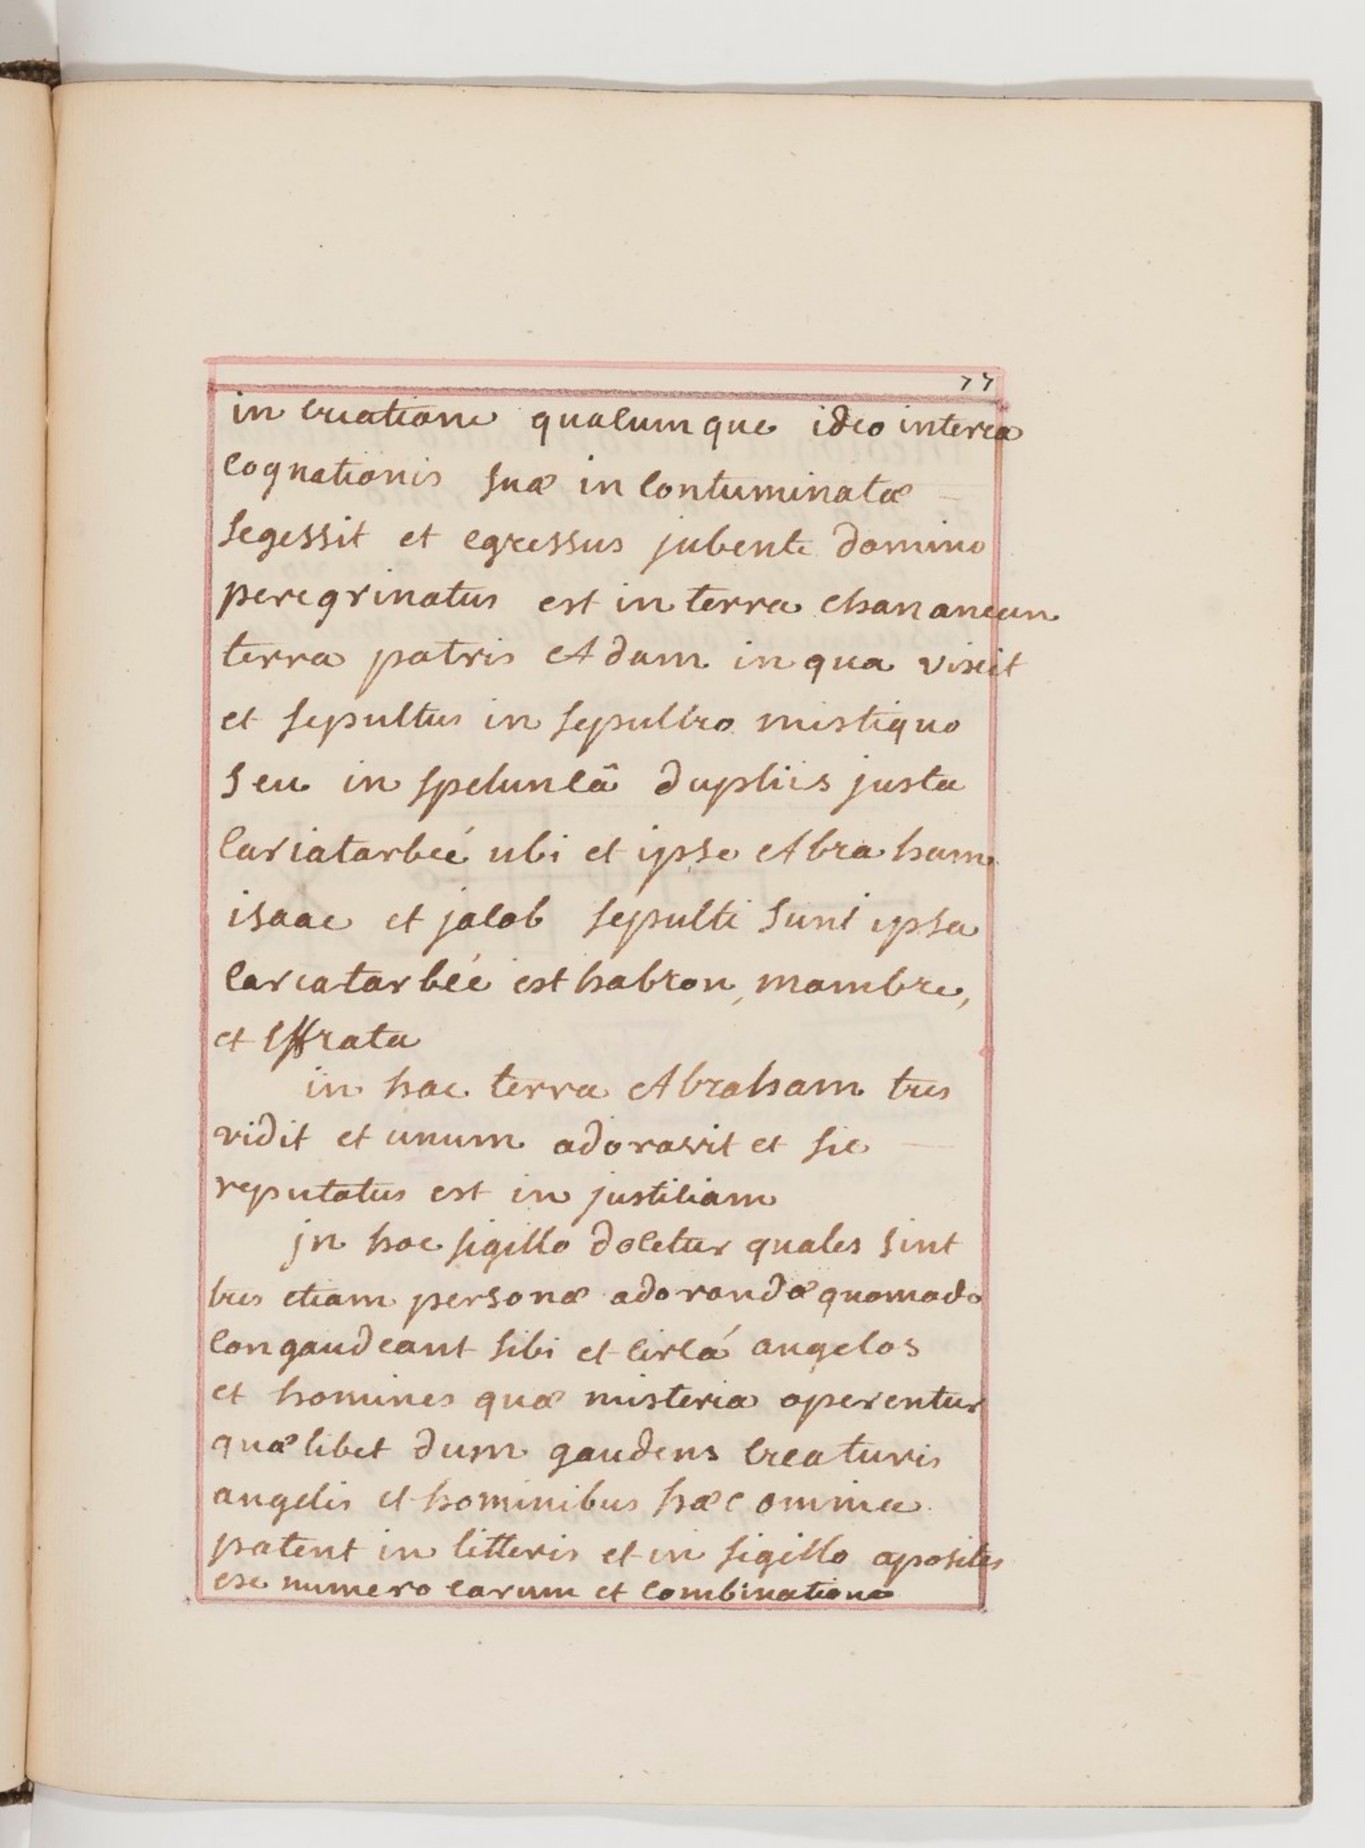 77
in creatione quacumque ideo interea
cognationis suæ in contuminatæ
segessit et egressus jubente domino
peregrinatus est in terra chananeam
terra patris Adam in qua vixit
et sepultus in sepulcro mistiquo
seu in speluncâ dupliis justa
cariatarbeé ubi et ipse Abraham
isaac et jacob sepulti sunt ipsa
carcatarbéé est habron, mambre,
et Effrata
in hac terra Abraham tres
vidit et unum adoravit et sic
reputatus est in justiciam
jn hoc sigillo docetur quales sint
tres etiam personæ adorandæ quomodo
congaudeant sibi et circá angelos
et homines quæ misteria operentur
quælibet dum gaudens creaturis
angelis et hominibus hæc omnia
patent in litteris et in sigillo apositis
exe numero earum et combinatione